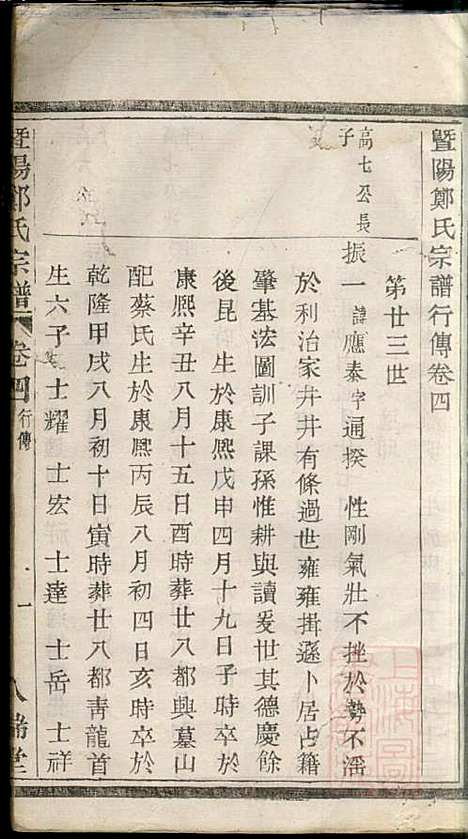 暨陽鄭氏宗譜行傳卷四
第廿三世
高七公長子
振一 諱應泰字通揆 性剛氣壯不挫於勢不淫
於利治家井井有條過世雍雍揖遜卜居占籍
肇基浤圖訓子課孫惟耕與讀爰世其德慶餘
後昆 生於康熙戊申四月十九日子時卒於
康熙辛丑八月十五日酉時葬廿八都興墓山
配蔡氏生於康熙丙辰八月初四日亥時卒於
乾隆甲戌八月初十日寅時葬廿八都青龍首
生六子 士耀 士宏 士達 士岳 士祥
暨陽鄭氏宗譜 卷四 行傳 一